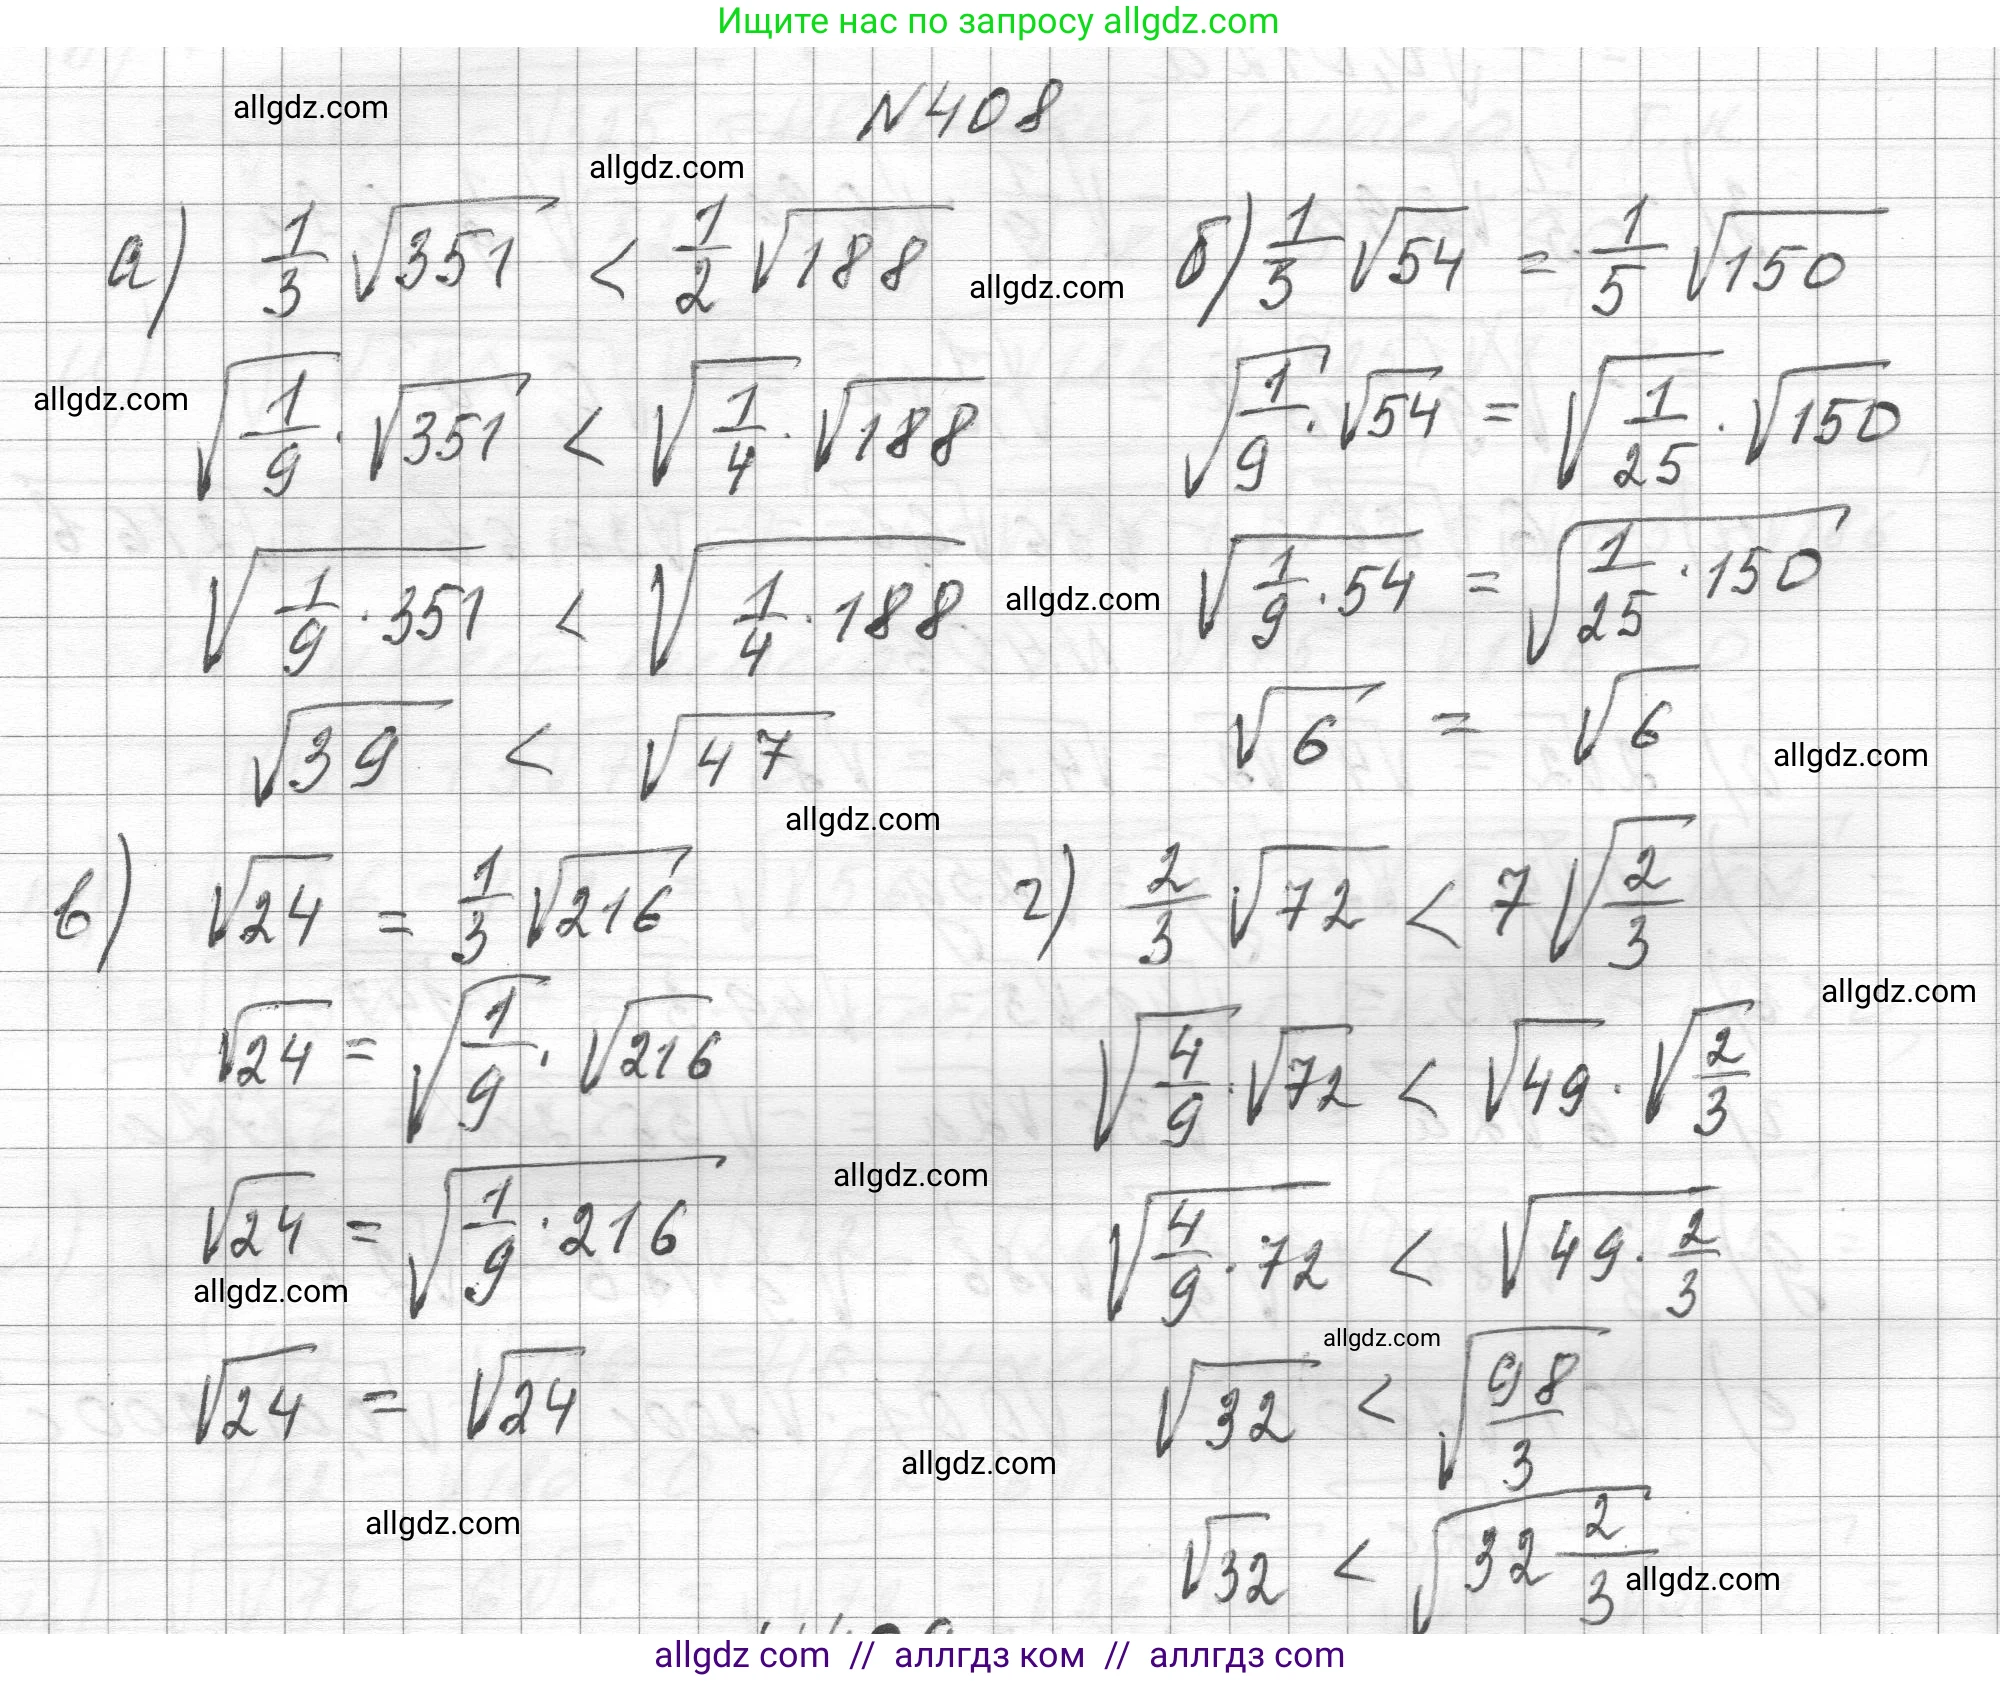 Ищите нас по запросу allgdz.com
allgdz.com
N408
allgdz.com
а) 1/3 √351 < 1/2 √188
allgdz.com
б) 1/3 √54 = 1/5 √150
allgdz.com
√1/9 · √351 < √1/4 · √188
√1/9 · √54 = √1/25 · √150
√1/9 · 351 < √1/4 · 188
allgdz.com
√1/9 · 54 = √1/25 · 150
√39 < √47
√6 = √6
allgdz.com
allgdz.com
в) √24 = 1/3 √216
г) 2/3 √72 < 7 √2/3
allgdz.com
√24 = √1/9 · √216
√4/9 · √72 < √49 · √2/3
allgdz.com
√24 = √1/9 · 216
√4/9 · 72 < √49 · 2/3
allgdz.com
allgdz.com
√24 = √24
√32 < √98/3
allgdz.com
allgdz.com
√32 < √32 2/3
allgdz.com
allgdz com // аллгдз ком // аллгдз com